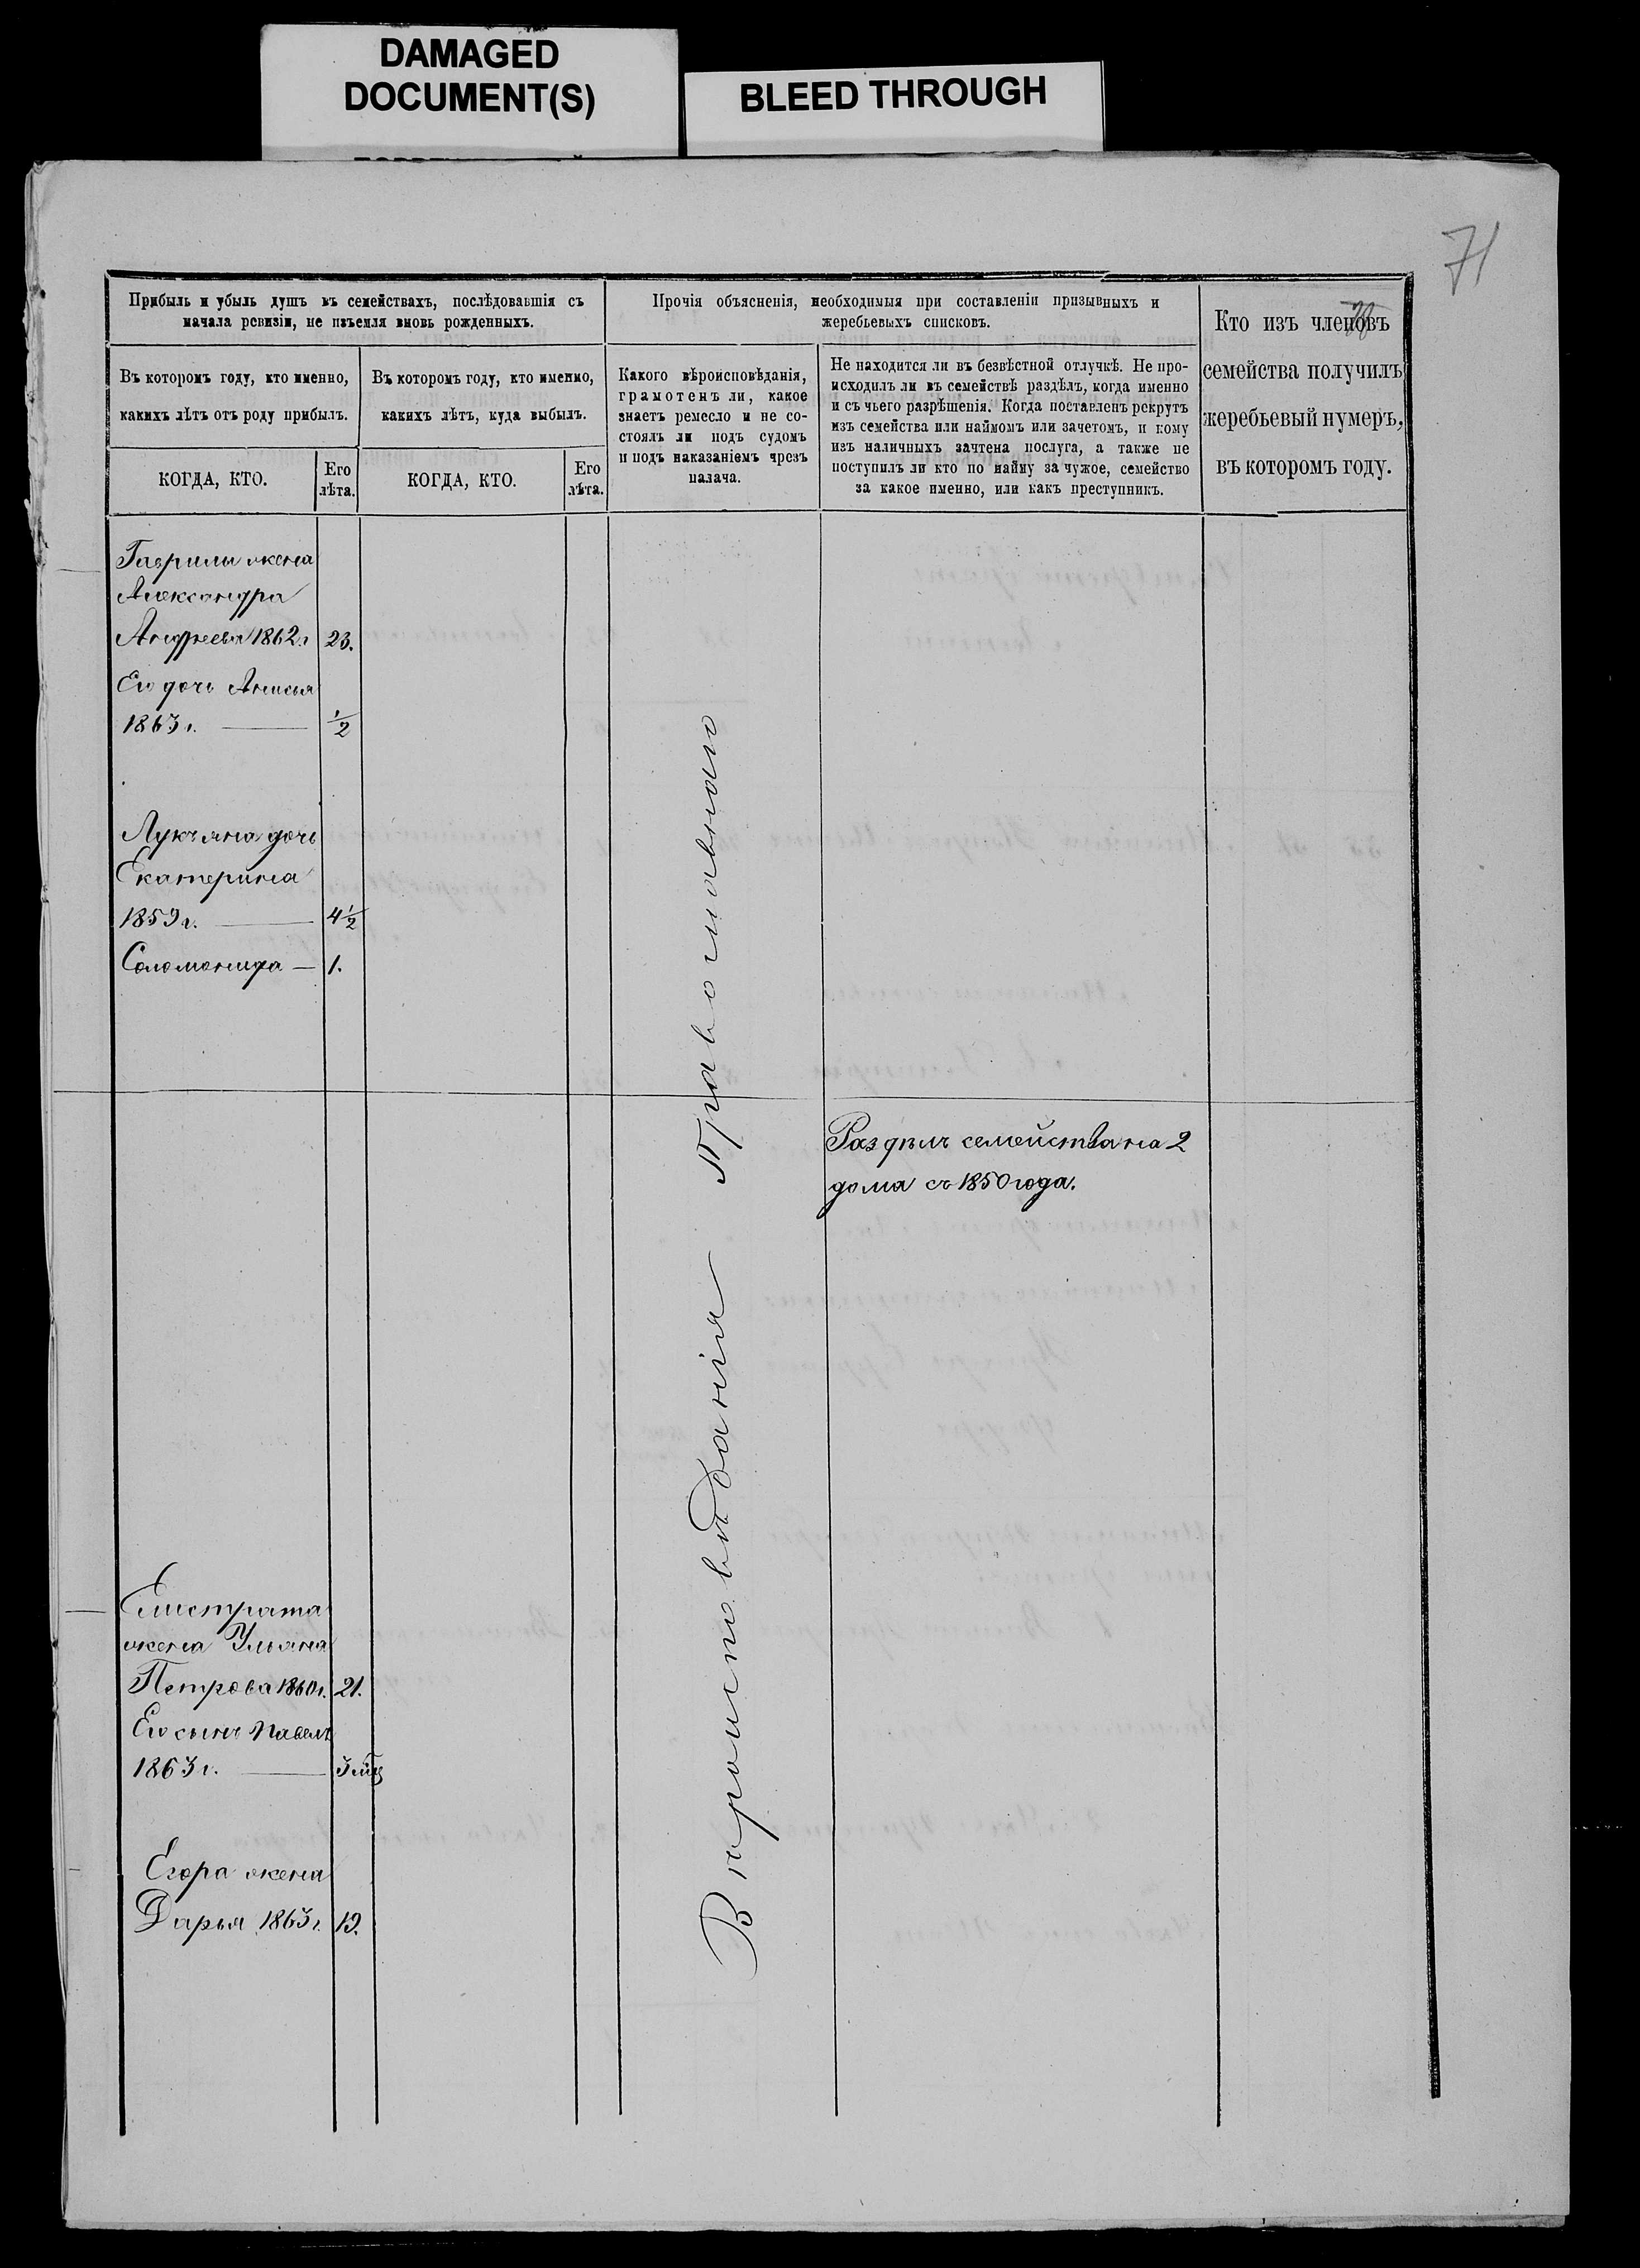 DAMAGED
DOCUMENT(S)
BLEED THROUGH
71
Прибыль и убыль душъ въ семействахъ, послѣдовавшія съ
начала ревизіи, не изъемля вновь рожденныхъ.
Прочія объясненія, необходимыя при составленіи призывныхъ и
жеребьевыхъ списковъ.
Кто изъ членовъ
семейства получилъ
жеребьевый нумеръ,
въ которомъ году.
Въ которомъ году, кто именно,
какихъ лѣтъ отъ роду прибылъ.
Въ которомъ году, кто именно,
какихъ лѣтъ, куда выбылъ.
Какого вѣроисповѣданія,
грамотенъ ли, какое
знаетъ ремесло и не со-
стоялъ ли подъ судомъ
и подъ наказаніемъ чрезъ
палача.
Не находится ли въ безвѣстной отлучкѣ. Не про-
исходилъ ли въ семействѣ раздѣлъ, когда именно
и съ чьего разрѣшенія. Когда поставленъ рекрутъ
изъ семейства или наймомъ или зачетомъ, и кому
изъ наличныхъ зачтена послуга, а также не
поступилъ ли кто по найму за чужое, семейство
за какое именно, или какъ преступникъ.
КОГДА, КТО.
Его
лѣта.
КОГДА, КТО.
Его
лѣта.
Гаврилы жена
Александра
Андреева 1862 г 23.
Его дочь Анисья
1863 г. — ½
Лукъяна дочь
Екатерина
1859 г. — 4½
Соломонида — 1.
Вѣроисповѣданія Православнаго
Раздѣлъ семейства на 2
дома съ 1850 года.
Елистрата
жена Ульяна
Петрова 1860 г. 21.
Его сынъ Павелъ
1863 г. — 3 мц
Егора жена
Дарья 1863 г. 19.